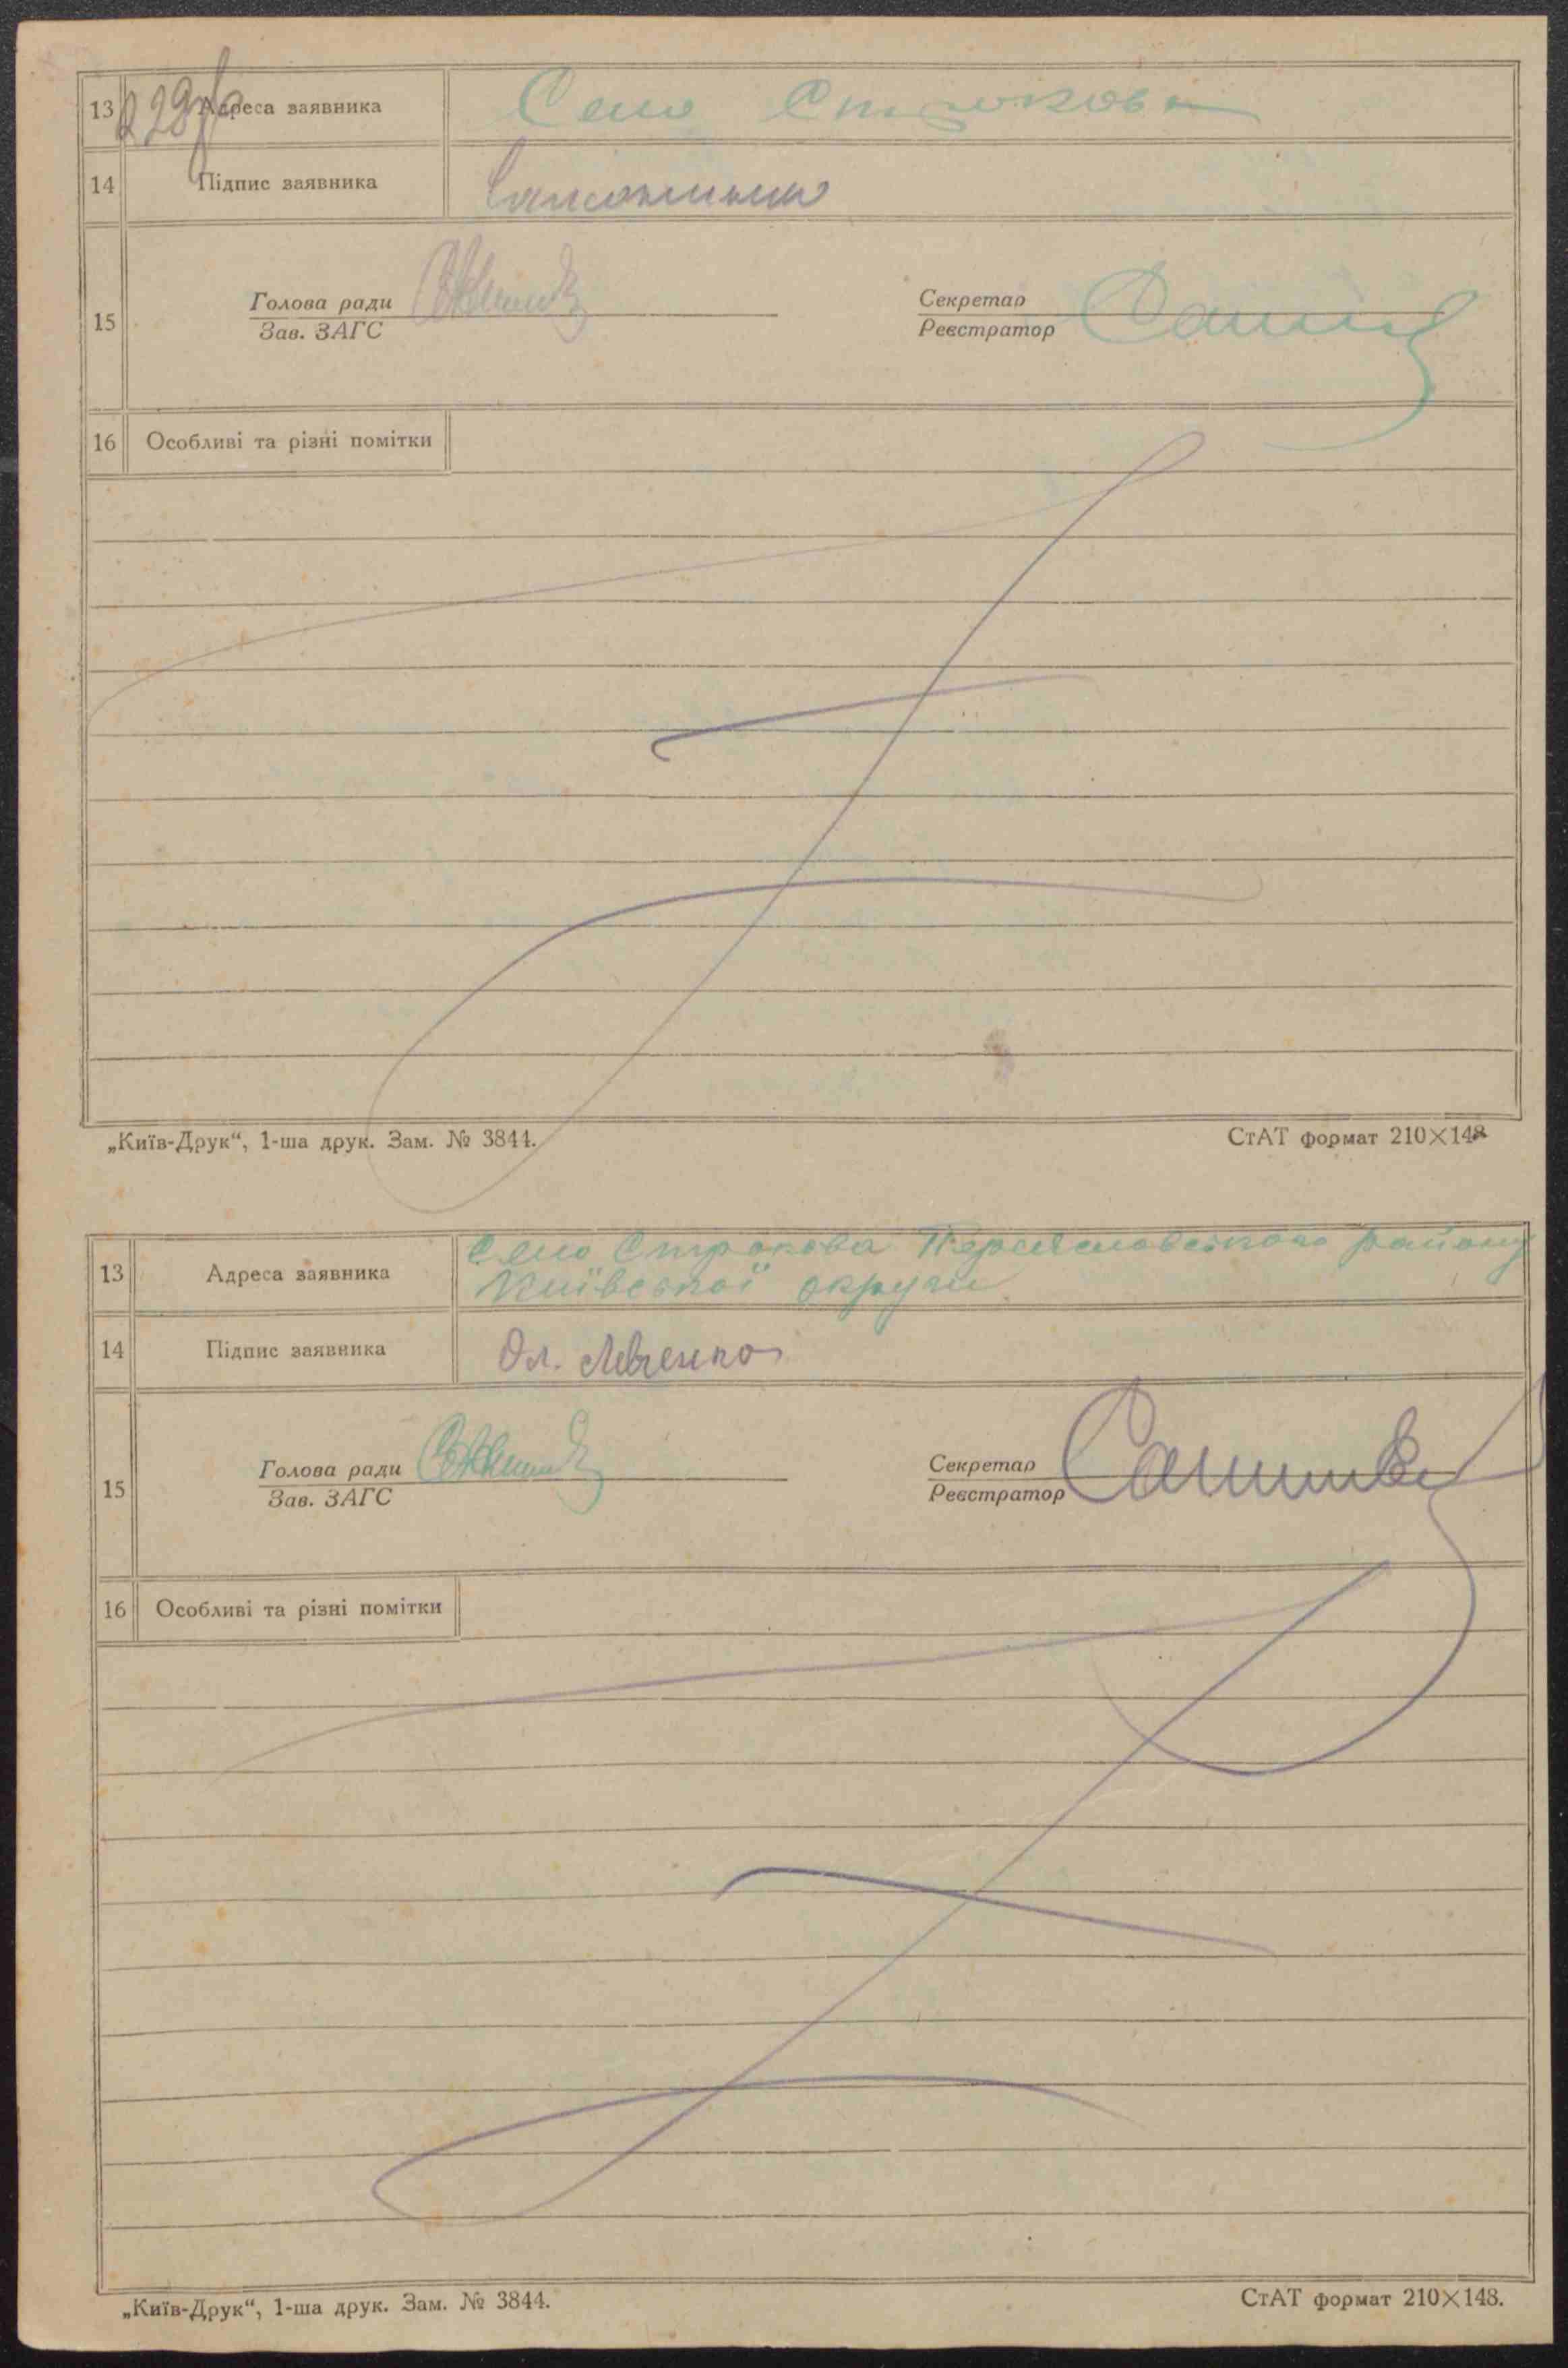 229зв
13 Адреса заявника Село Строкова
14 Підпис заявника
15 Голова ради
Зав. ЗАГС
Секретар
Реєстратор
16 Особливі та різні помітки
„Київ-Друк“, 1-ша друк. Зам. № 3844.
СтАТ формат 210×148
13 Адреса заявника Село Строкова району
Київської округи
14 Підпис заявника Ол. Левченко
15 Голова ради
Зав. ЗАГС
Секретар
Реєстратор
16 Особливі та різні помітки
„Київ-Друк“, 1-ша друк. Зам. № 3844.
СтАТ формат 210×148.